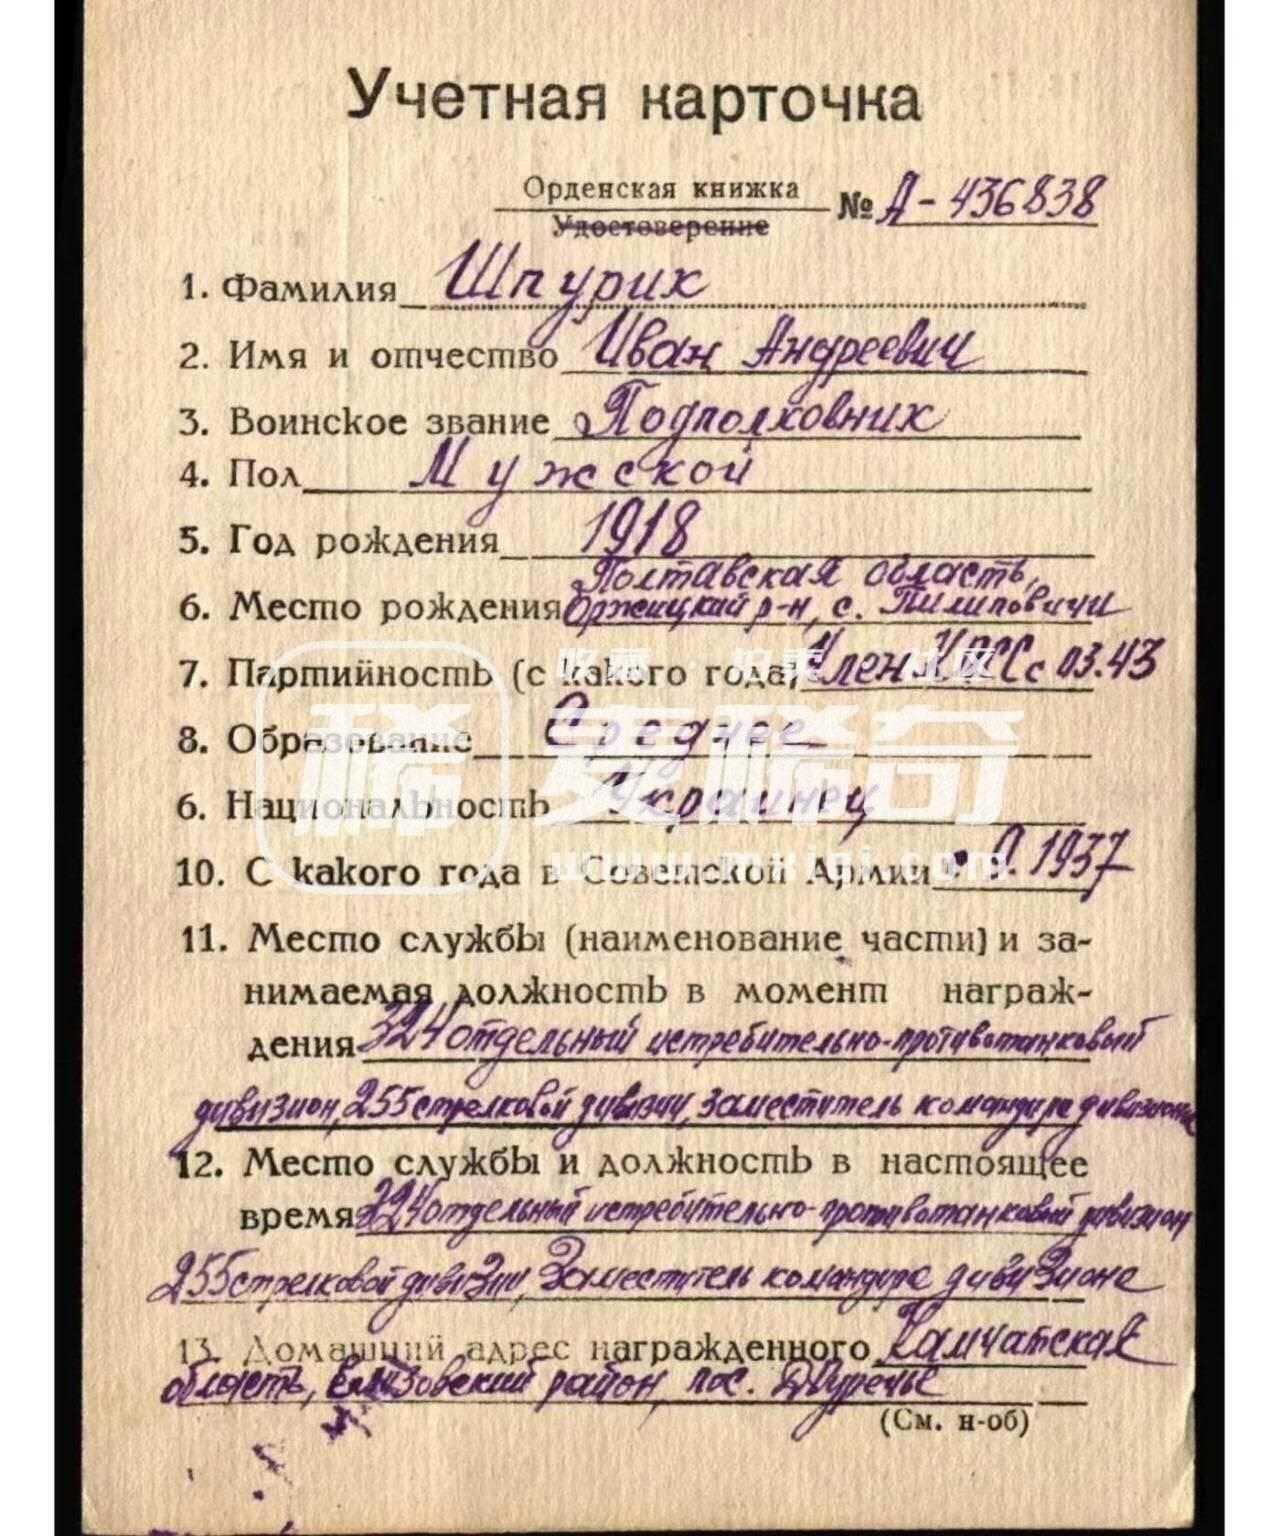 Учетная карточка
Орденская книжка
Удостоверение
№ А-436838
1. Фамилия Шпурик
2. Имя и отчество Иван Андреевич
3. Воинское звание Подполковник
4. Пол Мужской
5. Год рождения 1918
Полтавская область,
6. Место рождения Оржицкий р-н, с. Пилиповичи
7. Партийность (с какого года) Член КПСС с 03.43
8. Образование Среднее
6. Национальность Украинец
10. С какого года в Советской Армии 1937
11. Место службы (наименование части) и за-
нимаемая должность в момент награж-
дения 324 отдельный истребительно-противотанковый
дивизион, 255 стрелковой дивизии, заместитель командира дивизиона
12. Место службы и должность в настоящее
время 324 отдельный истребительно-противотанковый дивизион
255 стрелковой дивизии, Заместитель командира дивизиона
13. Домашний адрес награжденного Камчатская
область, Елизовский район, пос. Двуречье
(См. н-об)
收藏·拍卖·社区
稀 麦稀奇
www.mxiqi.com